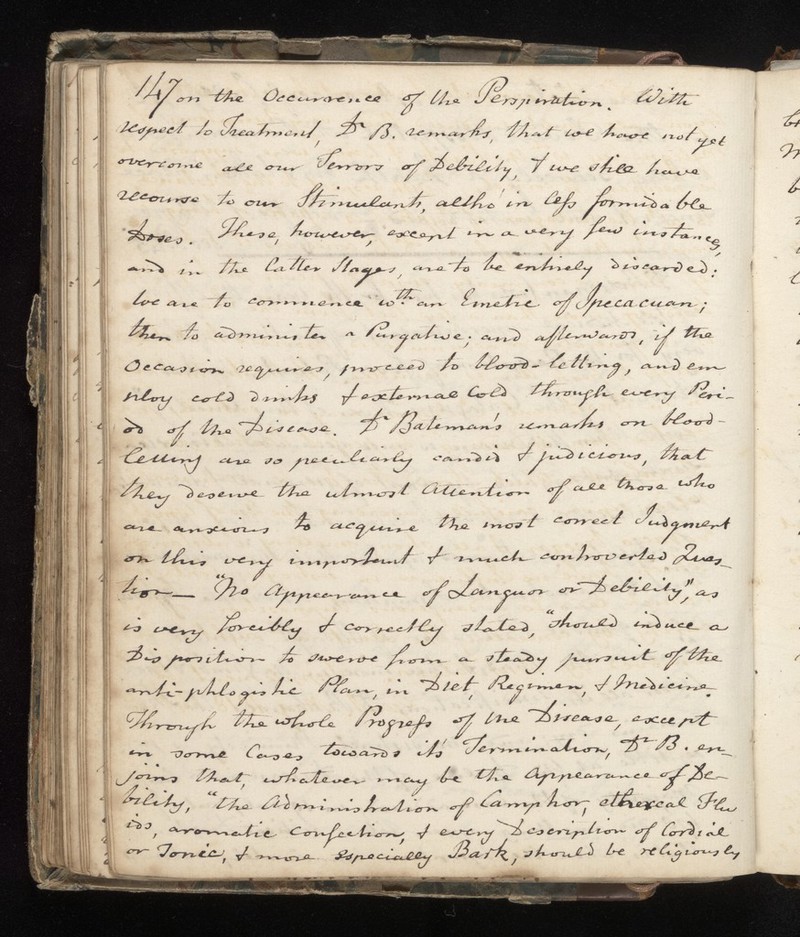 147 on the Occurrence of the Perspiration. With
respect to Treatment, Dr B. remarks, that we have not yet
overcome all our Terrors of Debility, & we still have
recourse to our Stimulants, altho' in less formidable
Doses. These, however, except in a very few instances,
and in the latter Stages, are to be entirely discarded:
We are to commence wth an Emetic of Ipecacuan;
then to administer a Purgative; and afterwards, if the
Occasion requires, proceed to blood-letting, and em
ploy cold drinks & external Cold through every Peri-
od of the Disease. Dr Bateman's remarks on blood-
letting are so peculiarly candid & judicious, that
they deserve the utmost Attention of all those who
are anxious to acquire the most correct Judgment
on this very important & much controverted Ques-
tion— "No Appearance of Languor or Debility", as
is very forcibly & correctly stated, "should induce a
Disposition to swerve from a steady pursuit of the
anti-phlogistic Plan, in Diet, Regimen, & Medicine.
Through the whole Progress of the Disease, except
in some Cases towards it's Termination, Dr B. en-
joins that, whatever may be the Appearance of De-
bility, "the Administration of Camphor, ethereal Flu
ids, aromatic Confection, & every Description of Cordial
or Tonic, & more especially Bark, should be religiously